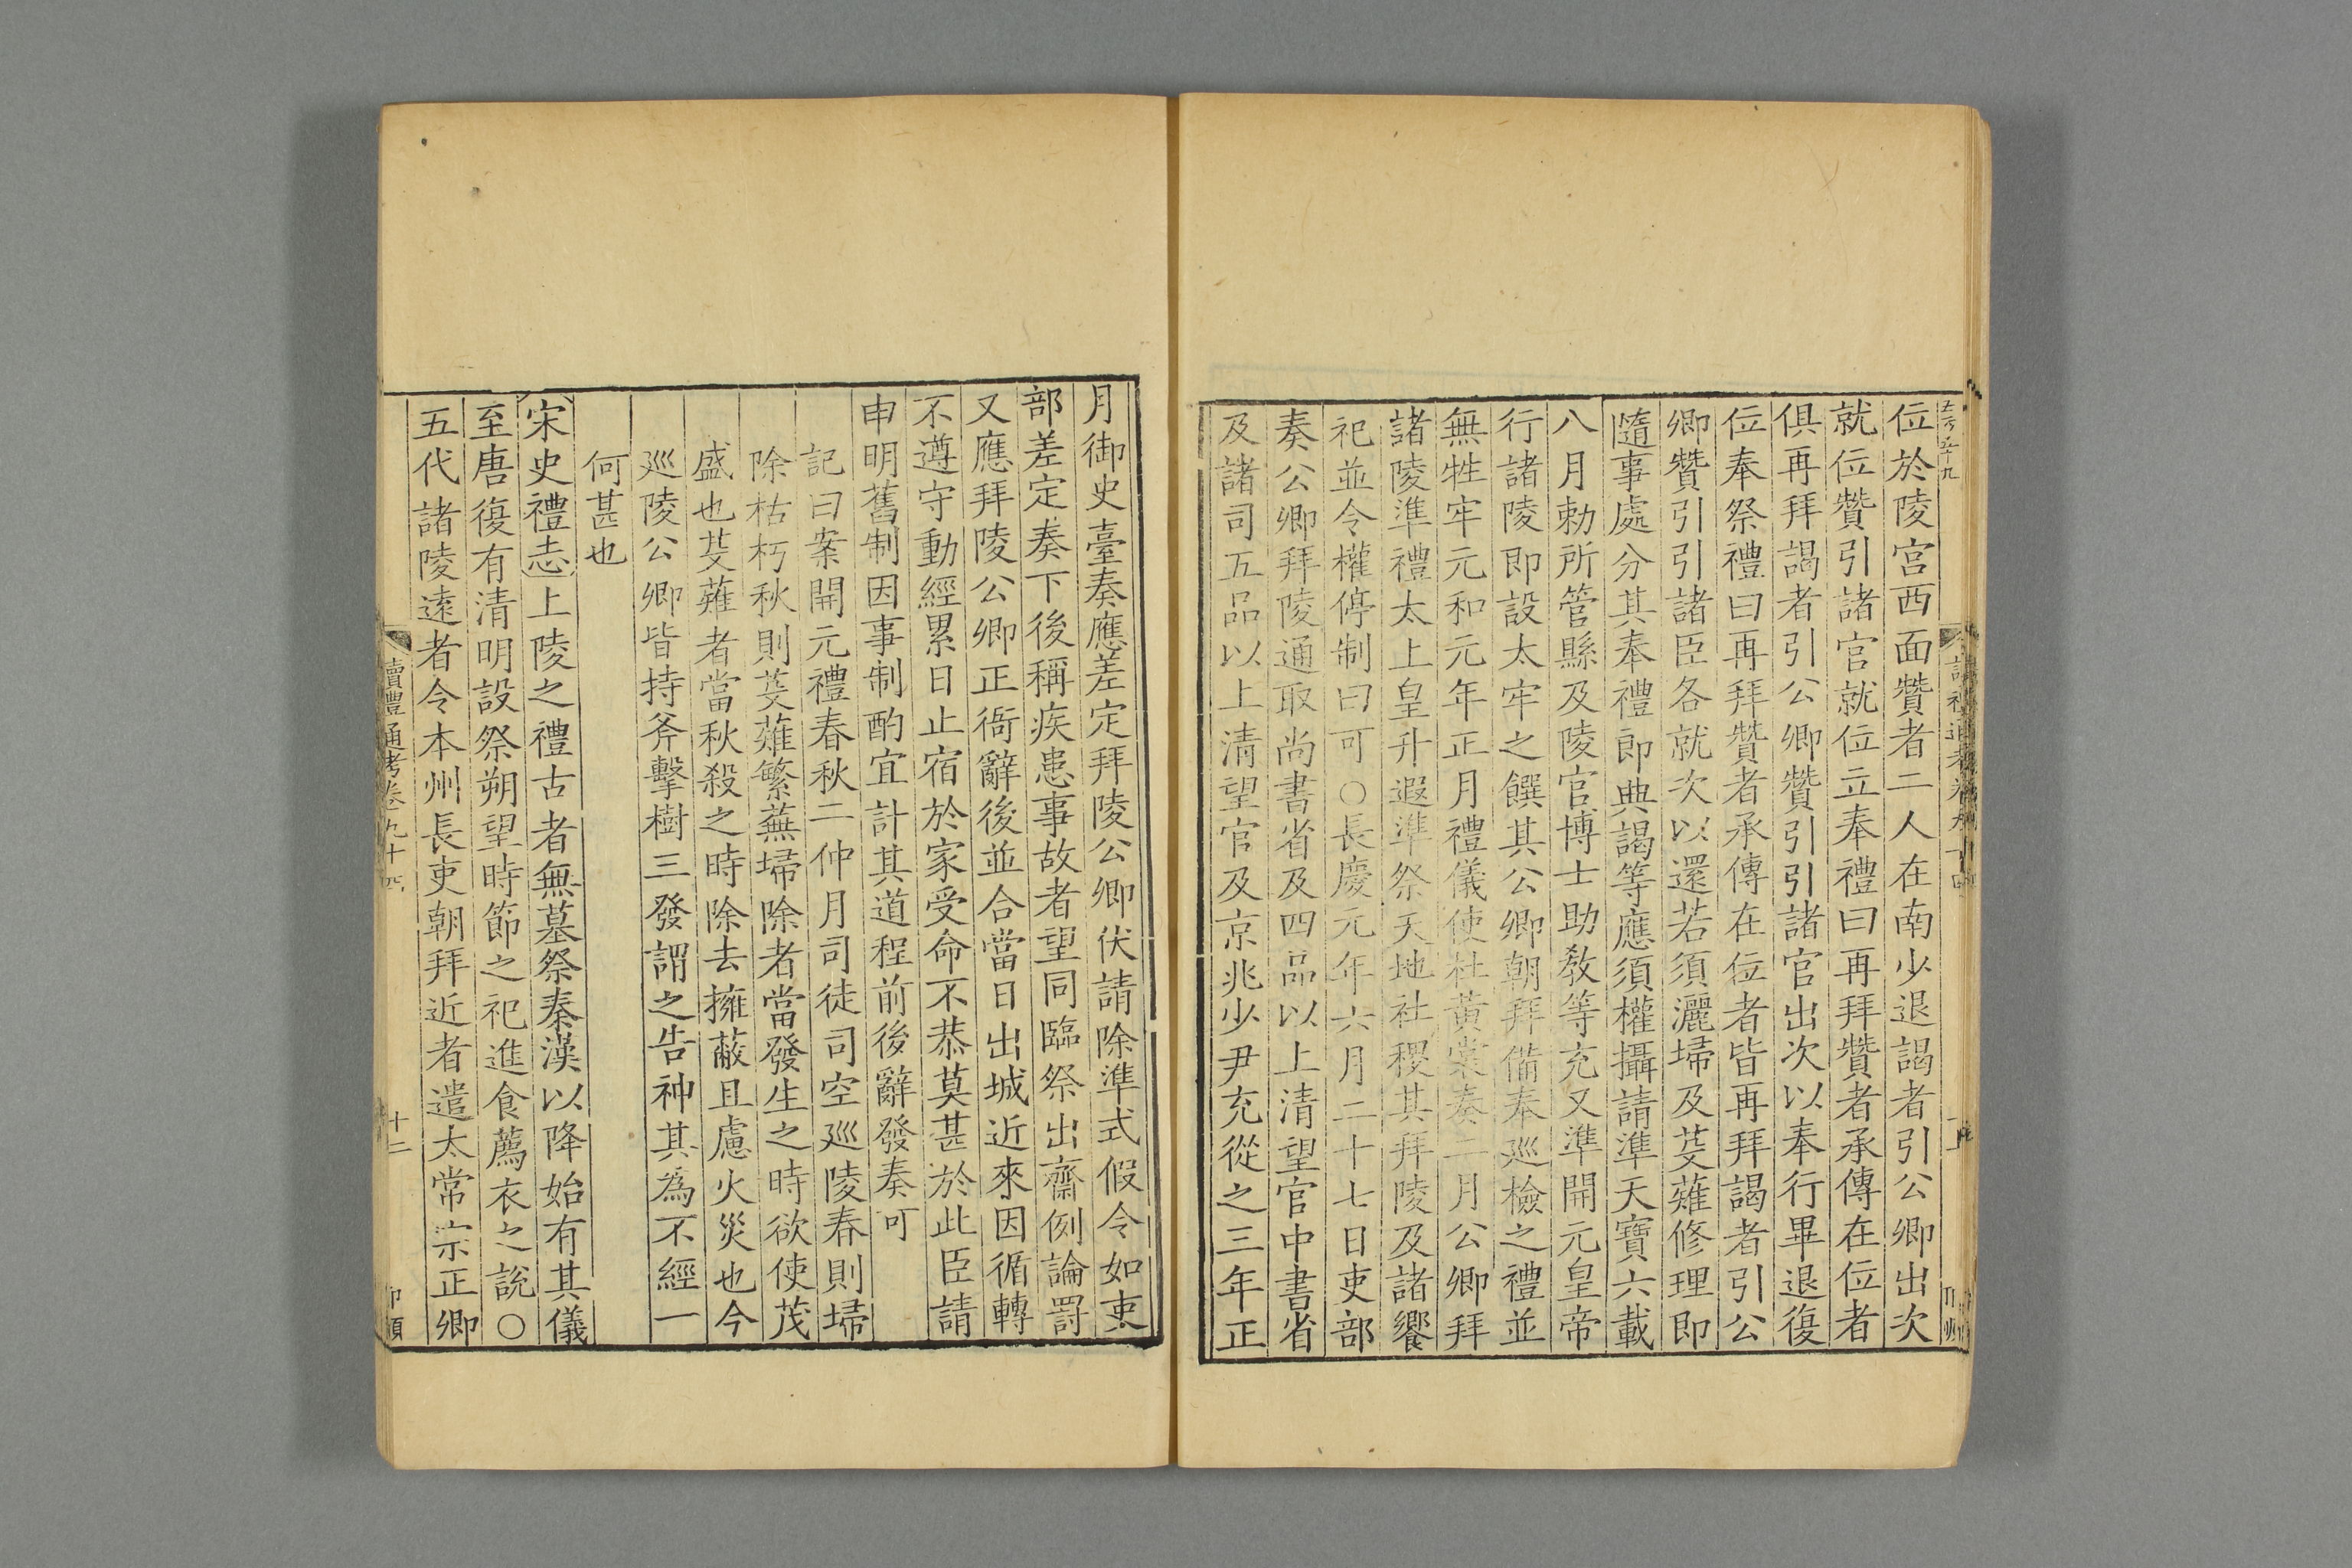 位於陵宮西面贊者二人在南少退謁者引公卿出次
就位贊引諸官就位立奉禮曰再拜贊者承傳在位者
俱再拜謁者引公卿贊引引諸官出次以奉行畢退復
位奉祭禮曰再拜贊者承傳在位者皆再拜謁者引公
卿贊引引諸臣各就次以還若須灑埽及芟薙修理即
隨事處分其奉禮郎典謁等應須權攝請準天寶六載
八月勅所管縣及陵官博士助教等充又準開元皇帝
行諸陵即設太牢之饌其公卿朝拜備奉巡檢之禮並
無牲牢元和元年正月禮儀使杜黃裳奏二月公卿拜
諸陵準禮太上皇升遐準祭天地社稷其拜陵及諸饗
祀並令權停制曰可○長慶元年六月二十七日吏部
奏公卿拜陵通取尚書省及四品以上清望官中書省
及諸司五品以上清望官及京兆少尹充從之三年正
月御史臺奏應差定拜陵公卿伏請除準式假令如吏
部差定奏下後稱疾患事故者望同臨祭出齋例論罰
又應拜陵公卿正衙辭後並合當日出城近來因循轉
不遵守動經累日止宿於家受命不恭莫甚於此臣請
申明舊制因事制酌宜計其道程前後辭發奏可
記曰案開元禮春秋二仲月司徒司空巡陵春則埽
除枯朽秋則芟薙繁蕪埽除者當發生之時欲使茂
盛也芟薙者當秋殺之時除去擁蔽且慮火災也今
巡陵公卿皆持斧擊樹三發謂之告神其為不經一
何甚也
宋史禮志上陵之禮古者無墓祭秦漢以降始有其儀
至唐復有清明設祭朔望時節之祀進食薦衣之說○
五代諸陵遠者令本州長吏朝拜近者遣太常宗正卿
讀禮通考卷九十四 十二